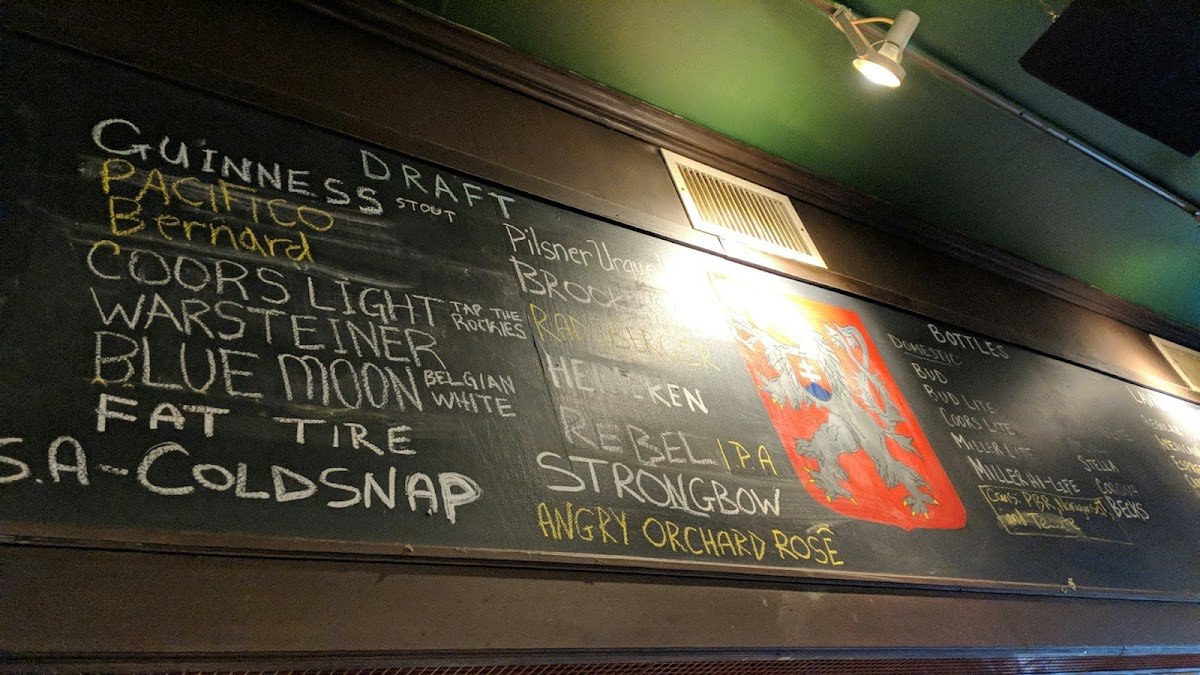 DRAFT
GUINNESS STOUT
PACIFICO
Bernard
COORS LIGHT TAP THE ROCKIES
WARSTEINER
BLUE MOON BELGIAN WHITE
FAT TIRE
S.A-COLDSNAP
Pilsner
HEINEKEN
REBEL I.P.A
STRONGBOW
ANGRY ORCHARD ROSÊ
BOTTLES
DOMESTIC
BUD
BUD LITE
COORS LITE
MILLER LITE
MILLER HI-LIFE
STELLA
CORONA
BECKS